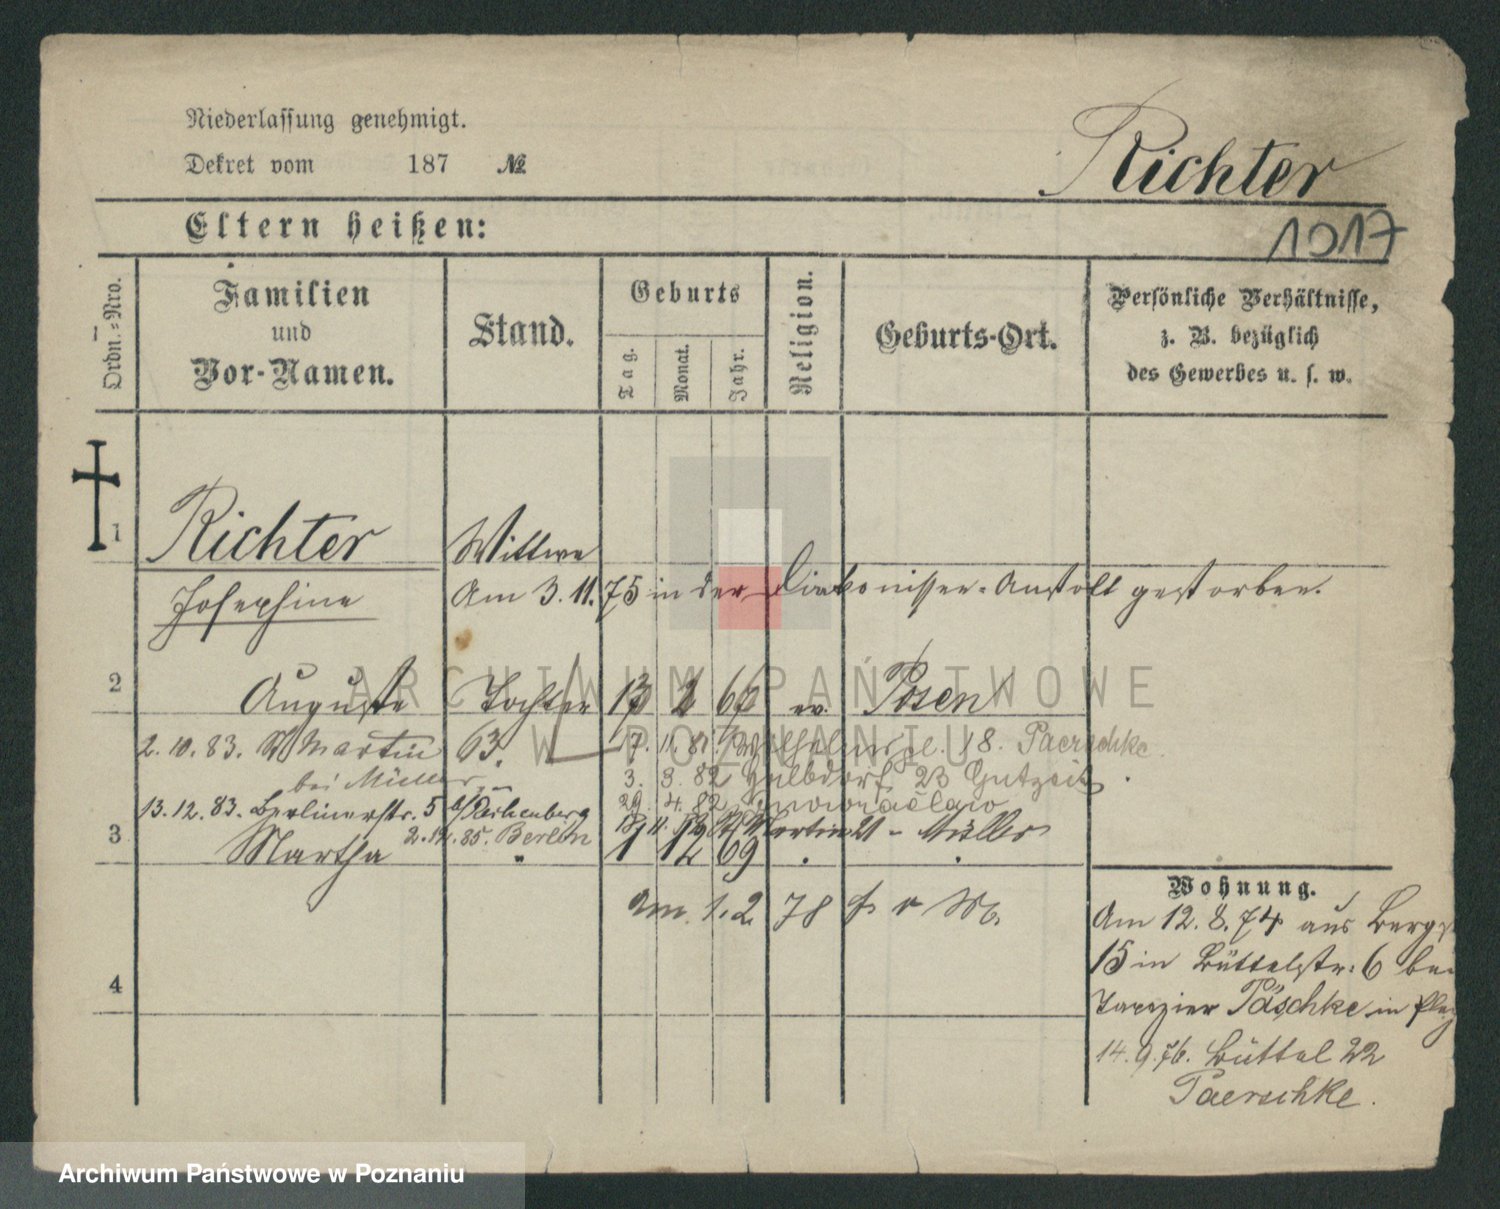 Niederlassung genehmigt.
Dekret vom 187 №
Richter
1017
Eltern heißen:
Ordn.-Nro.
Familien und Vor-Namen.
Stand.
Geburts
Tag.
Monat.
Jahr.
Religion.
Geburts-Ort.
Persönliche Verhältnisse,
z. B. bezüglich
des Gewerbes u. s. w.
1
Richter Wittwe
Josephine Am 3.11.75 in der Diakonissen-Anstalt gestorben.
2
Auguste Tochter 17 2 67 ev. Posen
2.10.83. St Martin 63. 7. 11. 81. 18. Paerschke
bei Müller 3. 3. 82 Halbdorf 23 Gutzeit
13.12.83. Berlinerstr. 5 29. 4. 82
2.12.85. Berlin St Martin 21 - Müller
3
Martha " 1 12 69 " "
am 1.2.78
Wohnung.
Am 12.8.74 aus Bergst
15 in Büttelstr. 6 bei
Tapezier Päschke in
14.9.76. Büttel 22
Paerschke.
4
ARCHIWUM PAŃSTWOWE
W POZNANIU
Archiwum Państwowe w Poznaniu